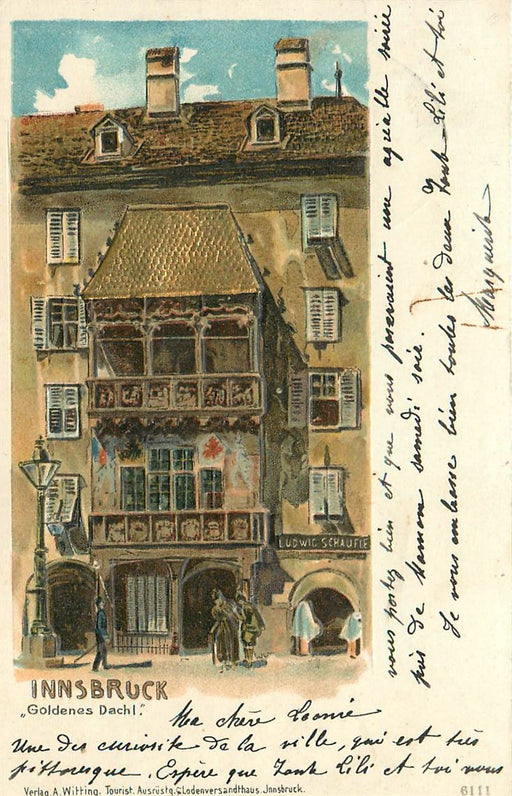 LUDWIG SCHAUFLE
INNSBRUCK
„Goldenes Dachl."
Ma chère Léonie
Une des curiosite de la ville, qui est très
pittoresque. Espère que Tante Lili et toi vous
vous portez bien et que vous passeraient une agréable soirée
près de Maman samedi soir.
Je vous embrasse bien toutes les deux Tante Lili et toi
Marguerite
Verlag. A. Witting. Tourist. Ausrüstg. & Lodenversandthaus. Innsbruck.
6111